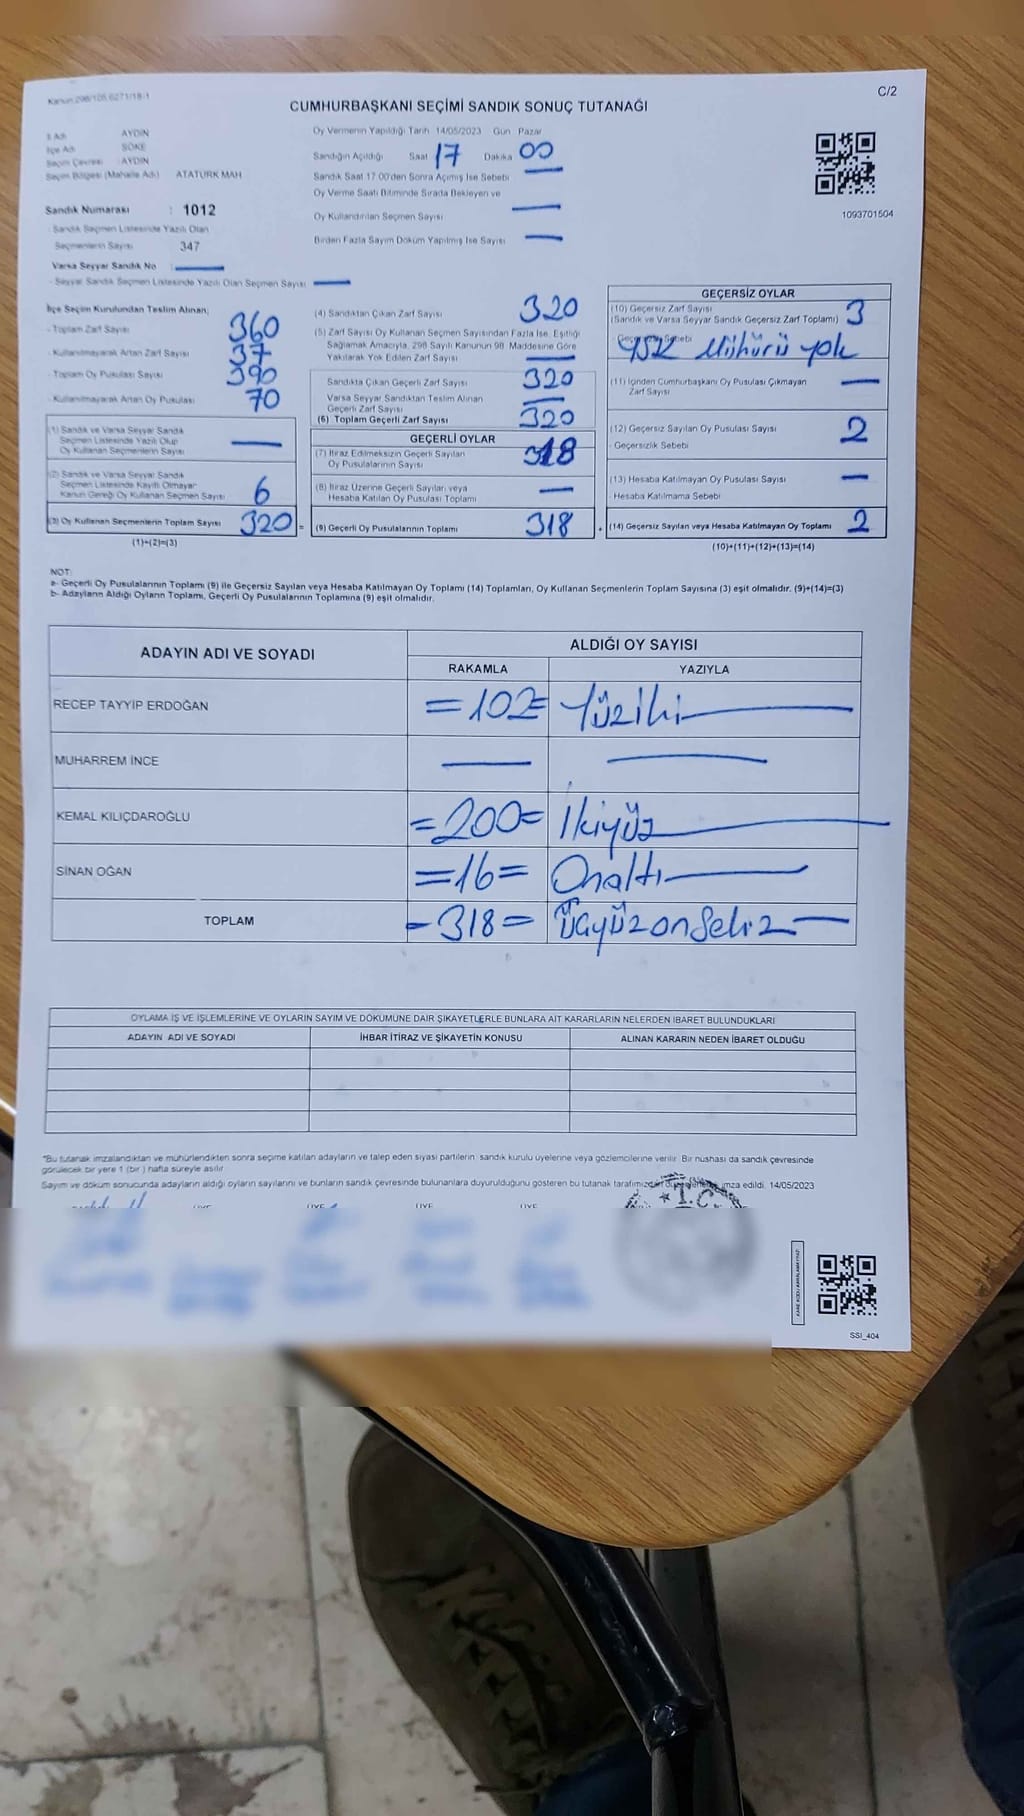 Kanun:298/105,6271/18-1
C/2
CUMHURBAŞKANI SEÇİMİ SANDIK SONUÇ TUTANAĞI
İl Adı AYDIN
İlçe Adı SÖKE
Seçim Çevresi : AYDIN
Seçim Bölgesi (Mahalle Adı) ATATÜRK MAH
Sandık Numarası : 1012
- Sandık Seçmen Listesinde Yazılı Olan
Seçmenlerin Sayısı 347
Varsa Seyyar Sandık No
- Seyyar Sandık Seçmen Listesinde Yazılı Olan Seçmen Sayısı
Oy Vermenin Yapıldığı Tarih 14/05/2023 Gün Pazar
Sandığın Açıldığı Saat 17 Dakika 00
Sandık Saat 17.00'den Sonra Açımış İse Sebebi
Oy Verme Saati Bitiminde Sırada Bekleyen ve
Oy Kullandırılan Seçmen Sayısı
Birden Fazla Sayım Döküm Yapılmış İse Sayısı
1093701504
İlçe Seçim Kurulundan Teslim Alınan;
- Toplam Zarf Sayısı 360
- Kullanılmayarak Artan Zarf Sayısı 37
- Toplam Oy Pusulası Sayısı 390
- Kullanılmayarak Artan Oy Pusulası 70
(1) Sandık ve Varsa Seyyar Sandık
Seçmen Listesinde Yazılı Olup
Oy Kullanan Seçmenlerin Sayısı
(2) Sandık ve Varsa Seyyar Sandık
Seçmen Listesinde Kayıtlı Olmayan
Kanun Gereği Oy Kullanan Seçmen Sayısı 6
(3) Oy Kullanan Seçmenlerin Toplam Sayısı 320 =
(1)+(2)=(3)
(4) Sandıktan Çıkan Zarf Sayısı 320
(5) Zarf Sayısı Oy Kullanan Seçmen Sayısından Fazla İse, Eşitliği
Sağlamak Amacıyla, 298 Sayılı Kanunun 98. Maddesine Göre
Yakılarak Yok Edilen Zarf Sayısı
Sandıkta Çıkan Geçerli Zarf Sayısı 320
Varsa Seyyar Sandıktan Teslim Alınan
Geçerli Zarf Sayısı
(6) Toplam Geçerli Zarf Sayısı 320
GEÇERLİ OYLAR
(7) İtiraz Edilmeksizin Geçerli Sayılan
Oy Pusulalarının Sayısı 318
(8) İtiraz Üzerine Geçerli Sayılan veya
Hesaba Katılan Oy Pusulası Toplamı
(9) Geçerli Oy Pusulalarının Toplamı 318
GEÇERSİZ OYLAR
(10) Geçersiz Zarf Sayısı 3
(Sandık ve Varsa Seyyar Sandık Geçersiz Zarf Toplamı)
- Geçersizlik Sebebi
YSK Mühürü yok
(11) İçinden Cumhurbaşkanı Oy Pusulası Çıkmayan
Zarf Sayısı
(12) Geçersiz Sayılan Oy Pusulası Sayısı 2
- Geçersizlik Sebebi
(13) Hesaba Katılmayan Oy Pusulası Sayısı
- Hesaba Katılmama Sebebi
(14) Geçersiz Sayılan veya Hesaba Katılmayan Oy Toplamı 2
(10)+(11)+(12)+(13)=(14)
NOT:
a- Geçerli Oy Pusulalarının Toplamı (9) ile Geçersiz Sayılan veya Hesaba Katılmayan Oy Toplamı (14) Toplamları, Oy Kullanan Seçmenlerin Toplam Sayısına (3) eşit olmalıdır. (9)+(14)=(3)
b- Adayların Aldığı Oyların Toplamı, Geçerli Oy Pusulalarının Toplamına (9) eşit olmalıdır.
ADAYIN ADI VE SOYADI ALDIĞI OY SAYISI
RAKAMLA YAZIYLA
RECEP TAYYİP ERDOĞAN =102= Yüziki
MUHARREM İNCE
KEMAL KILIÇDAROĞLU =200= İkiyüz
SİNAN OĞAN =16= Onaltı
TOPLAM -318= Üçyüzonsekiz
OYLAMA İŞ VE İŞLEMLERİNE VE OYLARIN SAYIM VE DÖKÜMÜNE DAİR ŞİKAYETLERLE BUNLARA AİT KARARLARIN NELERDEN İBARET BULUNDUKLARI
ADAYIN ADI VE SOYADI İHBAR İTİRAZ VE ŞİKAYETİN KONUSU ALINAN KARARIN NEDEN İBARET OLDUĞU
*Bu tutanak imzalandıktan ve mühürlendikten sonra seçime katılan adayların ve talep eden siyasi partilerin sandık kurulu üyelerine veya gözlemcilerine verilir. Bir nüshası da sandık çevresinde
görülecek bir yere 1 (bir) hafta süreyle asılır.
Sayım ve döküm sonucunda adayların aldığı oyların sayılarını ve bunların sandık çevresinde bulunanlara duyurulduğunu gösteren bu tutanak tarafımızdan imza edildi. 14/05/2023
ÜYE ÜYE ÜYE ÜYE
T.C.
SSİ_404